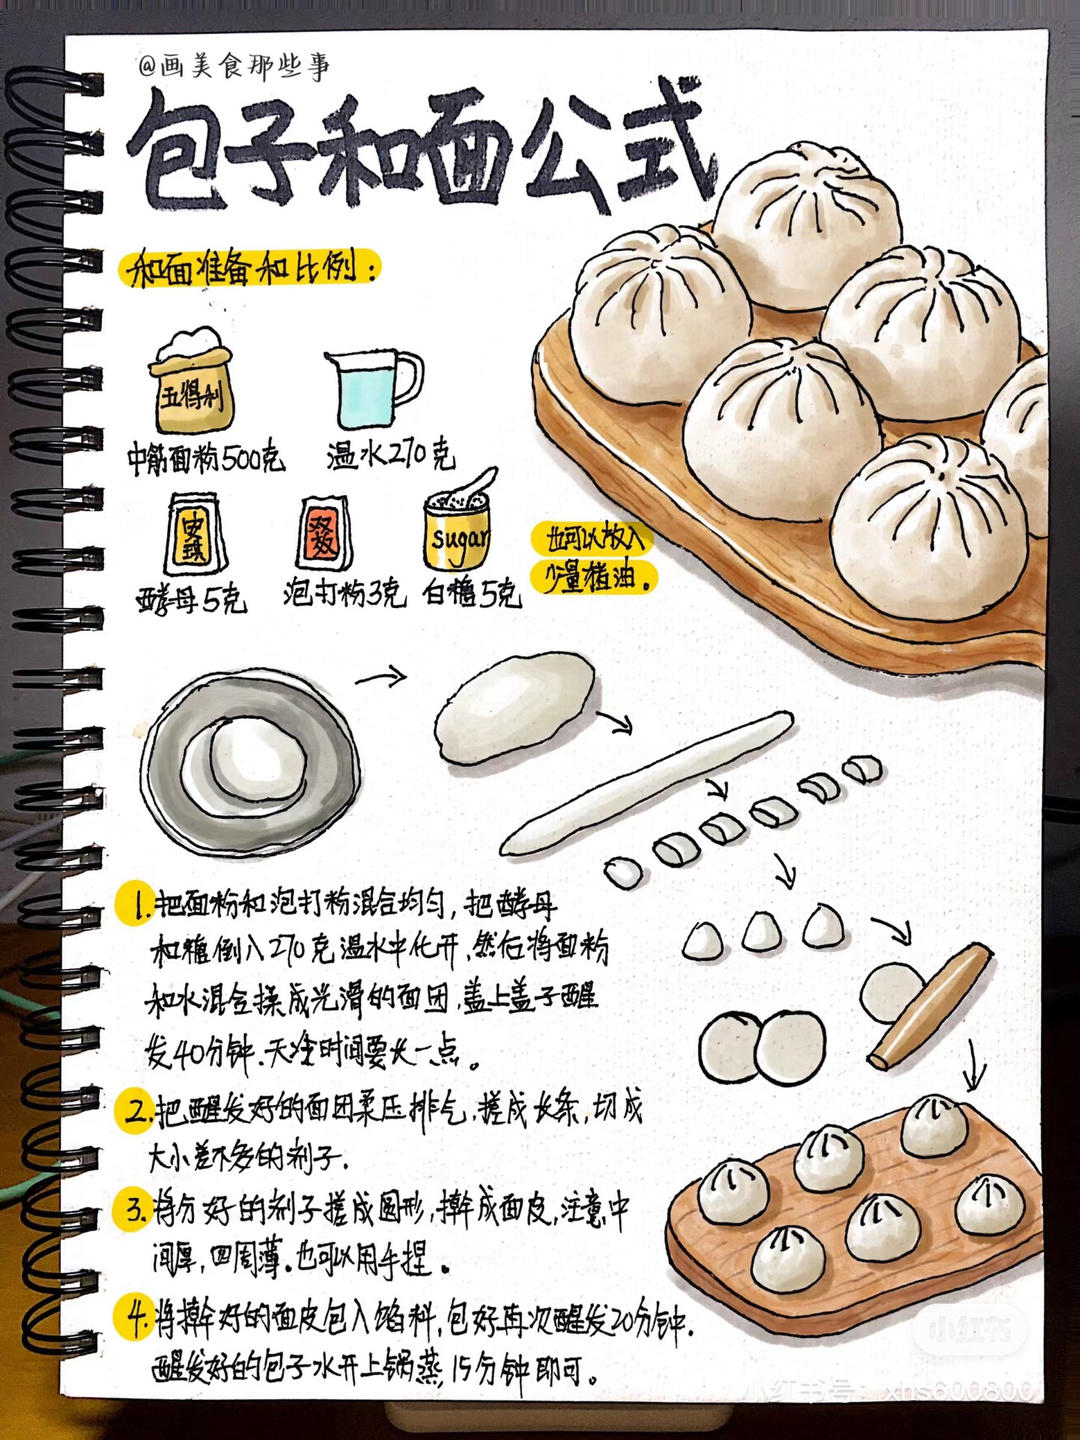 @画美食那些事
包子和面公式
和面准备和比例：
五得利
中筋面粉500克
温水270克
sugar
酵母5克
泡打粉3克
白糖5克
也可以放入
少量猪油。
1.把面粉和泡打粉混合均匀，把酵母
和糖倒入270克温水中化开，然后将面粉
和水混合揉成光滑的面团，盖上盖子醒
发40分钟.天冷时间要长一点。
2.把醒发好的面团柔压排气，搓成长条，切成
大小差不多的剂子.
3.将分好的剂子搓成圆形，擀成面皮，注意中
间厚，四周薄。也可以用手捏。
4.将擀好的面皮包入馅料，包好再次醒发20分钟.
醒发好的包子水开上锅蒸，15分钟即可。
小红书
小红书号：xhs600800